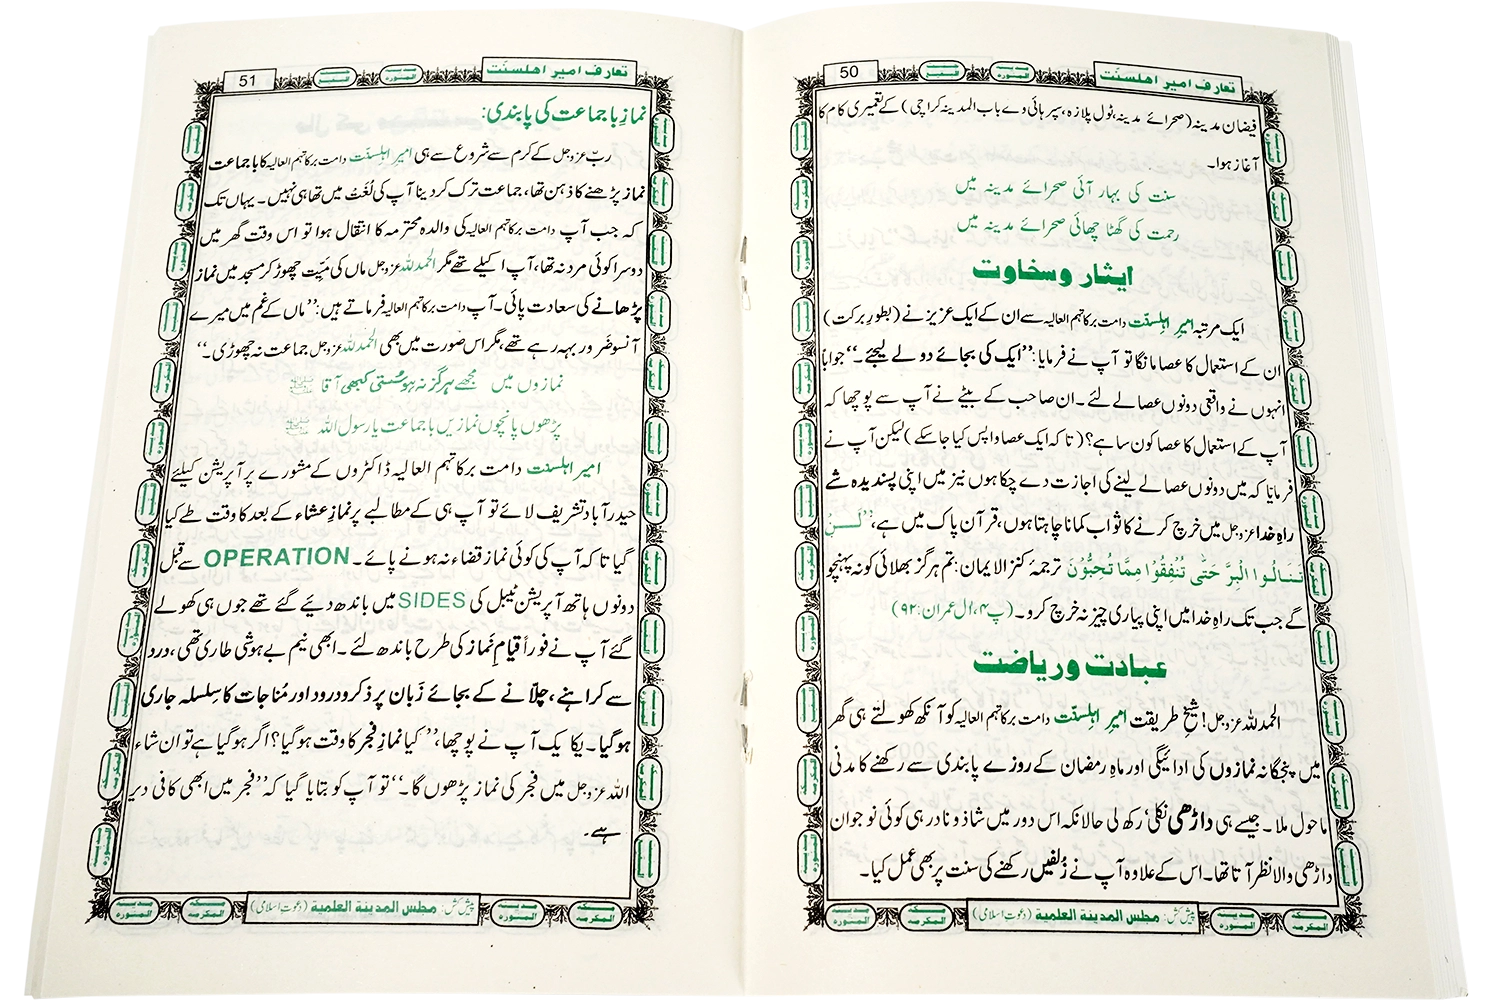 تعارف امیر اھلسنّت
50
فیضان مدینہ (صحرائے مدینہ، ٹول پلازہ، سپر ہائی وے باب المدینہ کراچی) کے تعمیری کام کا
آغاز ہوا۔
سنت کی بہار آئی صحرائے مدینہ میں
رحمت کی گھٹا چھائی صحرائے مدینہ میں
ایثار و سخاوت
ایک مرتبہ امیرِ اہلسنّت دامت برکاتہم العالیہ سے ان کے ایک عزیز نے (بطورِ برکت)
ان کے استعمال کا عصا مانگا تو آپ نے فرمایا: ’’ایک کی بجائے دو لے لیجئے۔‘‘ جواباً
انہوں نے واقعی دونوں عصا لے لئے۔ ان صاحب کے بیٹے نے آپ سے پوچھا کہ
آپ کے استعمال کا عصا کون سا ہے؟ (تاکہ ایک عصا واپس کیا جاسکے) لیکن آپ نے
فرمایا کہ میں دونوں عصا لے لینے کی اجازت دے چکا ہوں نیز میں اپنی پسندیدہ شے
راہِ خدا عزوجل میں خرچ کرنے کا ثواب کمانا چاہتا ہوں، قرآن پاک میں ہے، ’’لَــنْ
تَنَالُوا الْبِرَّ حَتّٰى تُنْفِقُوْا مِمَّا تُحِبُّوْنَ ترجمۂ کنز الایمان: تم ہرگز بھلائی کو نہ پہنچو
گے جب تک راہِ خدا میں اپنی پیاری چیز نہ خرچ کرو۔ (پ۴، اٰل عمران: ۹۲)
عبادت و ریاضت
الحمد للہ عزوجل! شیخِ طریقت امیرِ اہلسنّت دامت برکاتہم العالیہ کو آنکھ کھولتے ہی گھر
میں پنجگانہ نمازوں کی ادائیگی اور ماہِ رمضان کے روزے پابندی سے رکھنے کا مدنی
ماحول ملا۔ جیسے ہی داڑھی نکلی‘ رکھ لی حالانکہ اس دور میں شاذ و نادر ہی کوئی نوجوان
داڑھی والا نظر آتا تھا۔ اس کے علاوہ آپ نے زُلفیں رکھنے کی سنت پر بھی عمل کیا۔
پیش کش: مجلس المدینۃ العلمیۃ (دعوتِ اسلامی)
تعارف امیر اھلسنّت
51
نمازِ باجماعت کی پابندی:
ربّ عزوجل کے کرم سے شروع سے ہی امیرِ اہلِسنّت دامت برکاتہم العالیہ کا باجماعت
نماز پڑھنے کا ذہن تھا، جماعت ترک کر دینا آپ کی لُغَت میں تھا ہی نہیں۔ یہاں تک
کہ جب آپ دامت برکاتہم العالیہ کی والدہ محترمہ کا انتقال ہوا تو اس وقت گھر میں
دوسرا کوئی مرد نہ تھا، آپ اکیلے تھے مگر الحمدللہ عزوجل ماں کی مَیِّت چھوڑ کر مسجد میں نماز
پڑھانے کی سعادت پائی۔ آپ دامت برکاتہم العالیہ فرماتے ہیں: ’’ماں کے غم میں میرے
آنسو ضَرور بہہ رہے تھے، مگر اس صُورت میں بھی الحمدللہ عزوجل جماعت نہ چھوڑی۔‘‘
نمازوں میں مجھے ہرگز نہ ہو سُستی کبھی آقا ﷺ
پڑھوں پانچوں نمازیں باجماعت یا رسول اللہ ﷺ
امیر اہلسنت دامت برکاتہم العالیہ ڈاکٹروں کے مشورے پر آپریشن کیلئے
حیدرآباد تشریف لائے تو آپ ہی کے مطالبے پر نمازِ عشاء کے بعد کا وقت طے کیا
گیا تاکہ آپ کی کوئی نماز قضاء نہ ہونے پائے۔ OPERATION سے قبل
دونوں ہاتھ آپریشن ٹیبل کی SIDES میں باندھ دیئے گئے تھے جوں ہی کھولے
گئے آپ نے فوراً قیامِ نماز کی طرح باندھ لئے۔ ابھی نیم بے ہوشی طاری تھی، درد
سے کراہنے، چلّانے کے بجائے زَبان پر ذکر و درود اور مُناجات کا سِلسِلہ جاری
ہوگیا۔ یکایک آپ نے پوچھا، ’’کیا نمازِ فجر کا وقت ہوگیا؟ اگر ہوگیا ہے تو ان شاء
اللہ عزوجل میں فجر کی نماز پڑھوں گا۔‘‘ تو آپ کو بتایا گیا کہ ’’فجر میں ابھی کافی دیر
ہے۔
پیش کش: مجلس المدینۃ العلمیۃ (دعوتِ اسلامی)